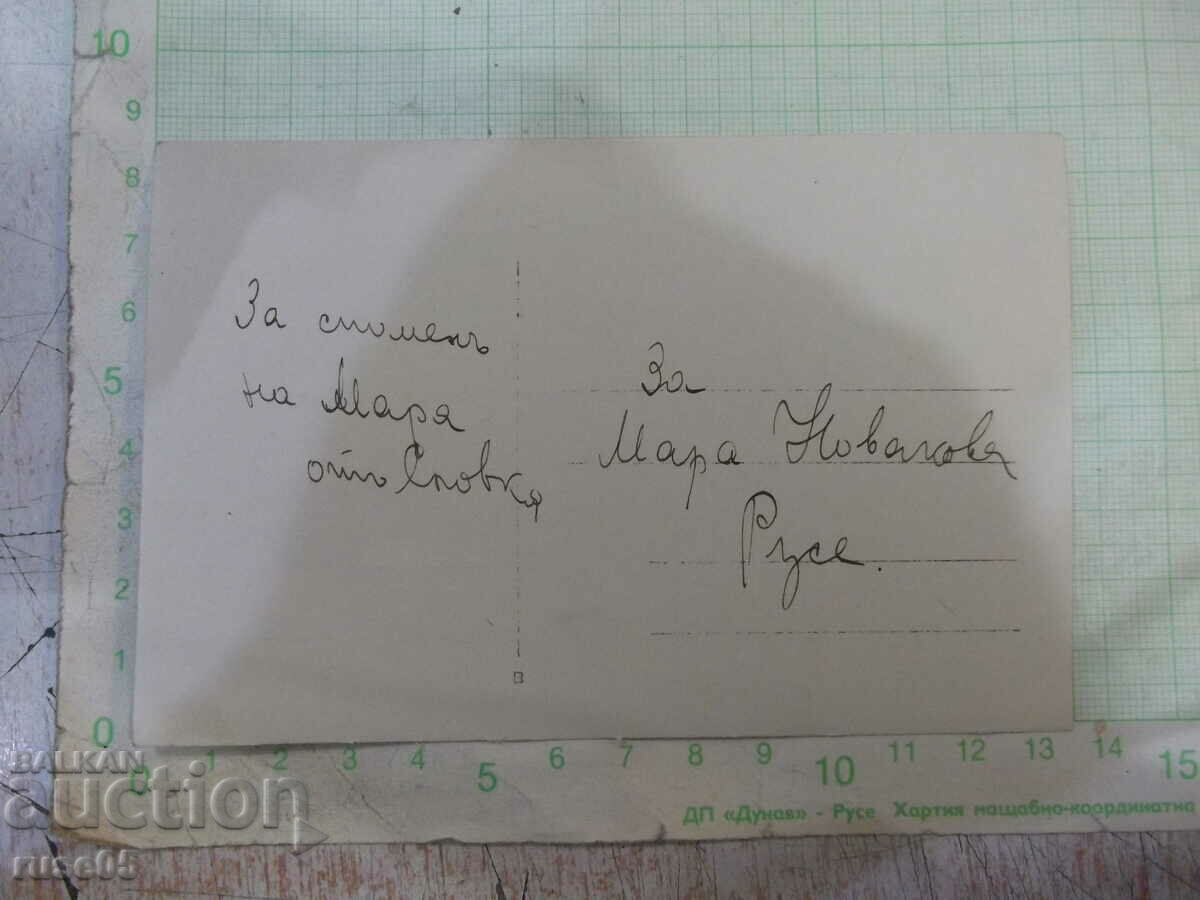 За споменъ
на Мара
отъ
За
Мара Новакова
Русе.
B
10
9
8
7
6
5
4
3
2
1
0
0 1 2 3 4 5 6 7 8 9 10 11 12 13 14 15
ДП «Дунав» - Русе Хартия мащабно-координатна
BALKAN
auction
ruse05